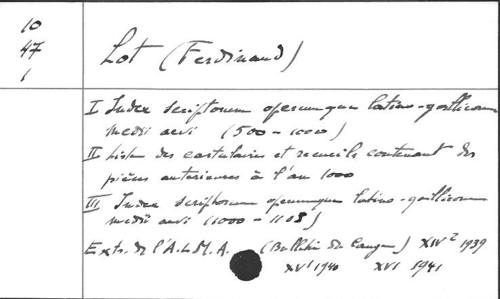 10
47
1
Lot (Ferdinand)
I Index scriptorum operumque latino-gallicorum
medii aevi (500-1000)
II Liste des cartulaires et recueils contenant des
pièces antérieures à l'an 1000
III Index scriptorum operumque latino-gallicorum
medii aevi (1000-1108)
Extr. de l'A.L.M.A. (Bulletin Du Cange) XIV² 1939
XV¹ 1940 XVI 1941